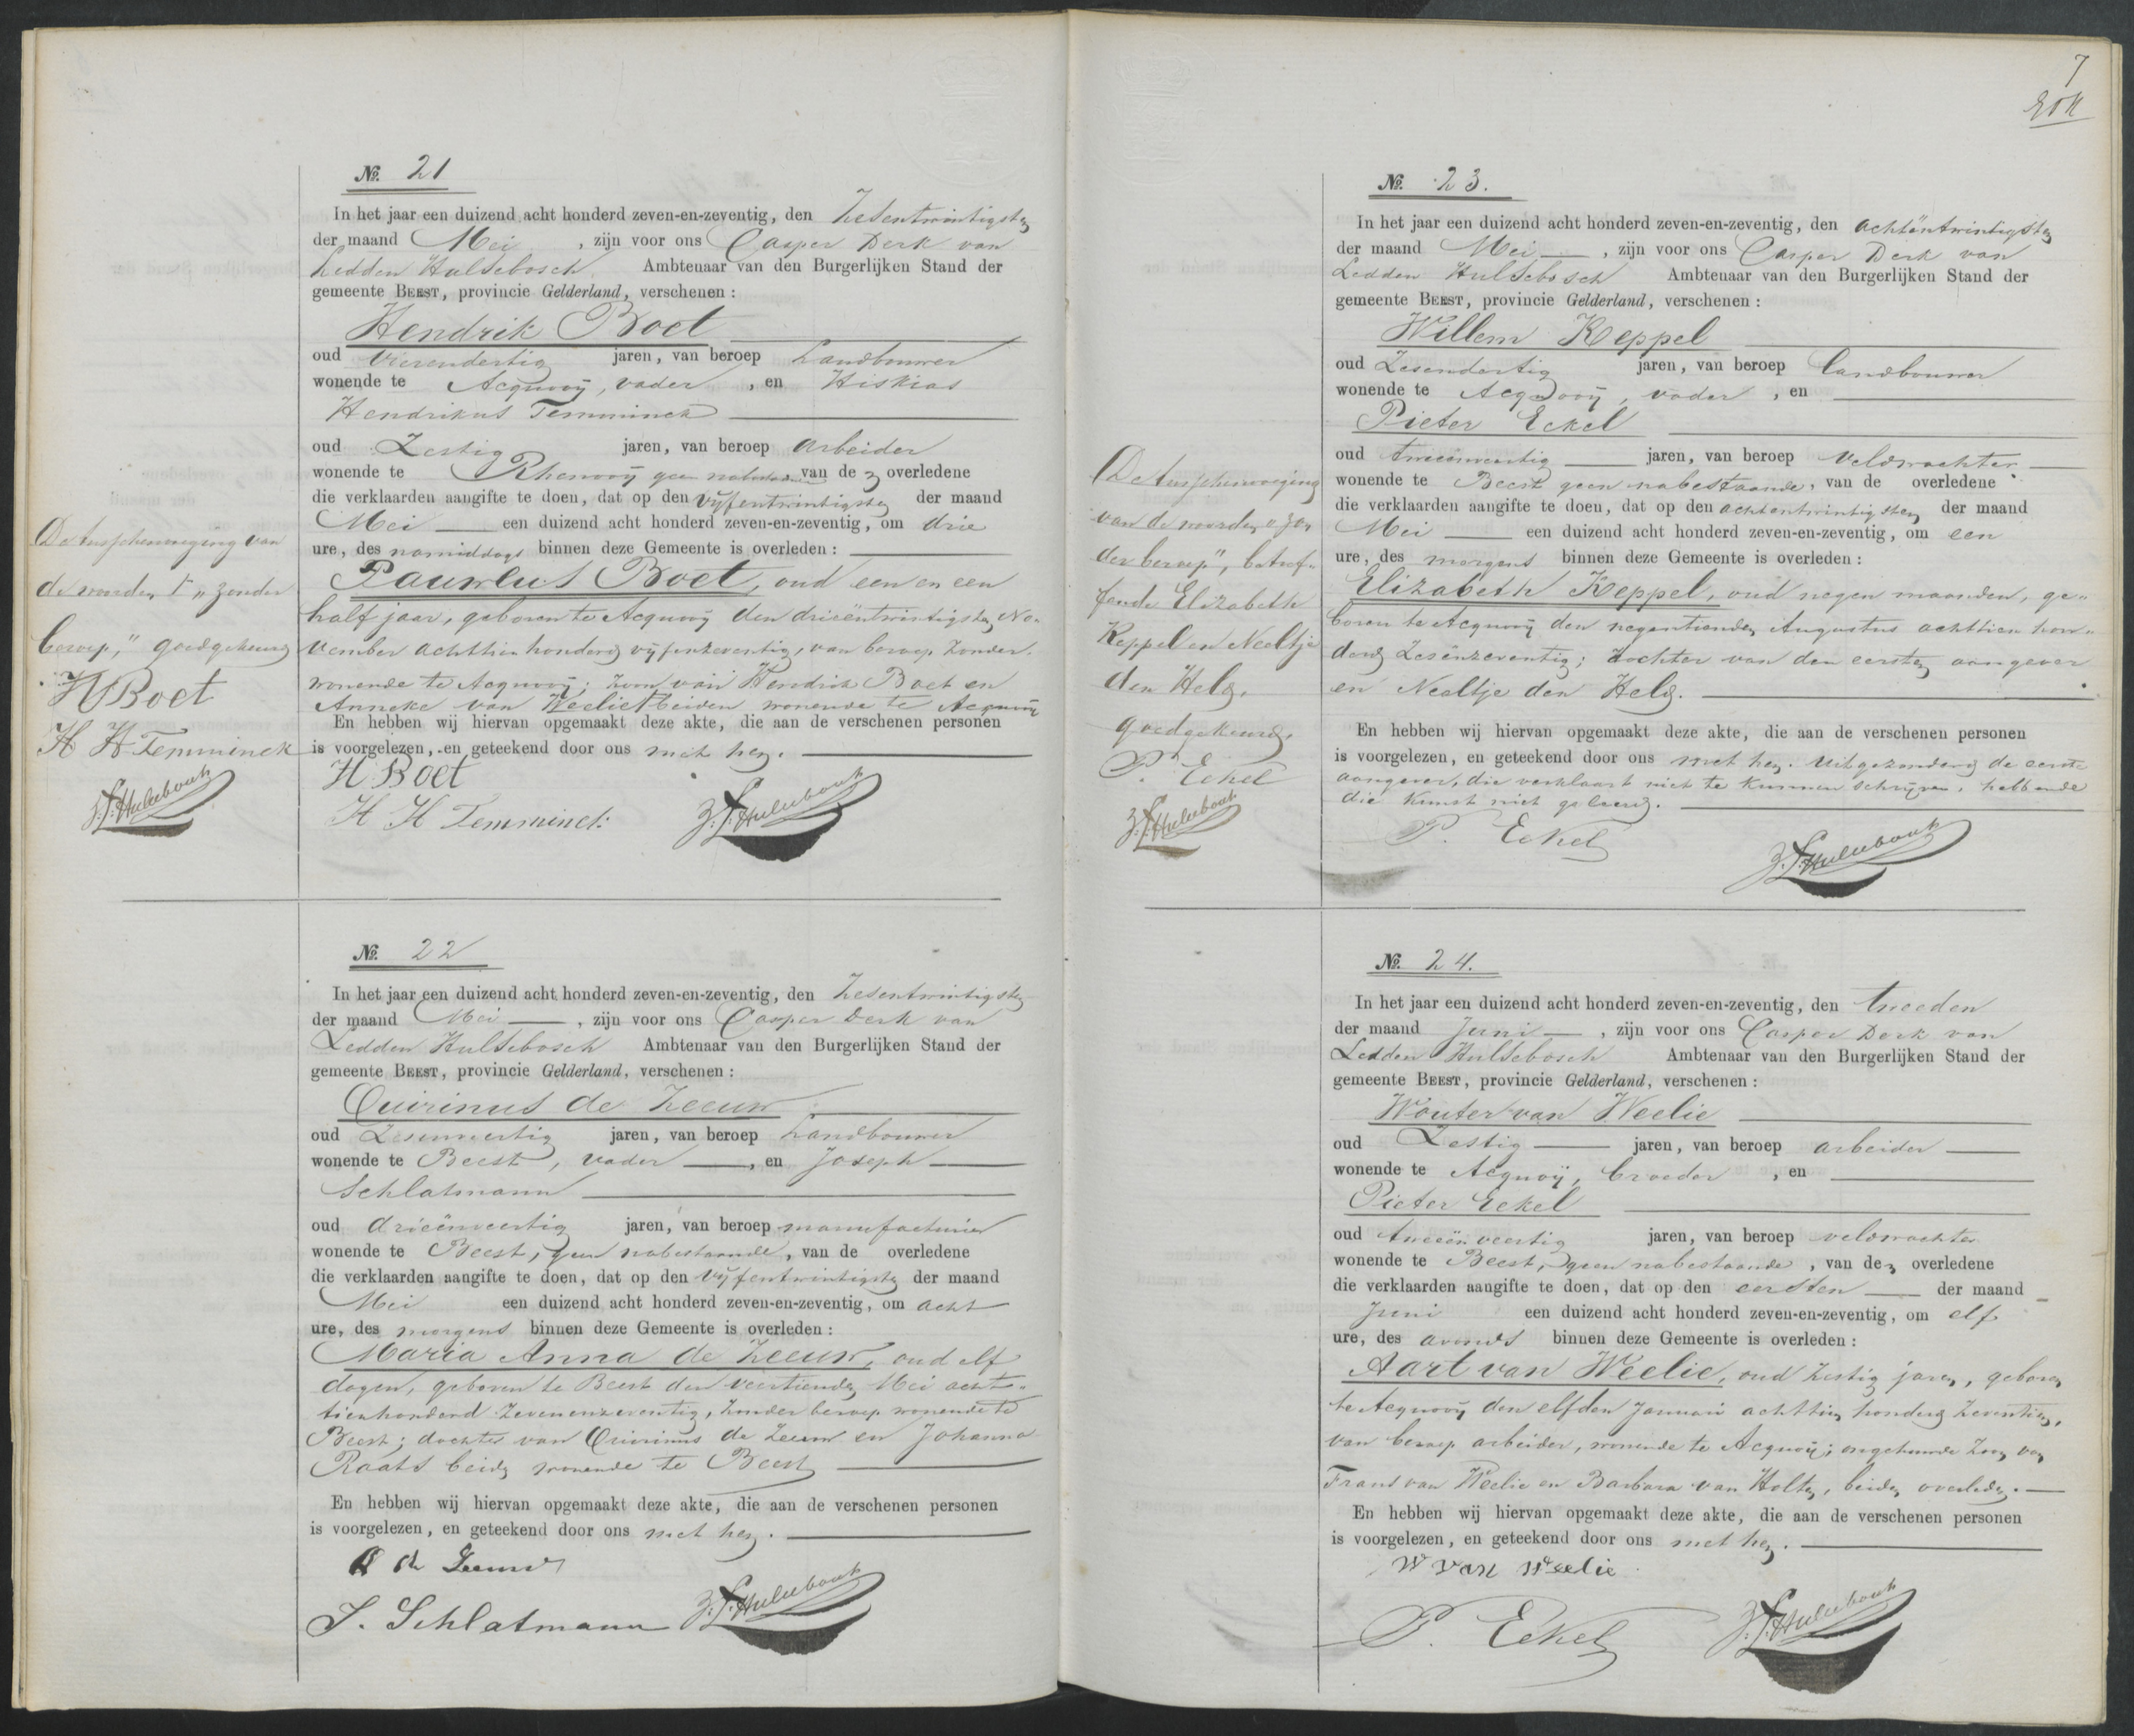 No. 21
In het jaar een duizend acht honderd zeven-en-zeventig, den Zesentwintigsten
der maand Mei, zijn voor ons Casper Derk van
Ledden Hulsebosch Ambtenaar van den Burgerlijken Stand der
gemeente BEEST, provincie Gelderland, verschenen:
Hendrik Boet
oud vierendertig jaren, van beroep Landbouwer
wonende te Acquoij, vader, en Hiskias
Hendrikus Temminck
oud Zestig jaren, van beroep arbeider
wonende te Rhenooij geen van de overledene
die verklaarden aangifte te doen, dat op den vijfentwintigsten der maand
Mei een duizend acht honderd zeven-en-zeventig, om drie
ure, des namiddags binnen deze Gemeente is overleden:
Pauwlus Boet, oud een en een
half jaar, geboren te Acquoij den drieëntwintigsten No-
vember achttien honderd vijfenzeventig, van beroep zonder.
wonende te Acquoij; zoon van Hendrik Boet en
Anneke van Weelie beiden wonende te Acquoij
En hebben wij hiervan opgemaakt deze akte, die aan de verschenen personen
is voorgelezen, en geteekend door ons met hen.
H Boet
H H Temminck
De tusschenvoeging van
de woorden "zonder
beroep," goedgekeurd
H Boet
H H Temminck
No. 22
In het jaar een duizend acht honderd zeven-en-zeventig, den Zesentwintigsten
der maand Mei, zijn voor ons Casper Derk van
Ledden Hulsebosch Ambtenaar van den Burgerlijken Stand der
gemeente BEEST, provincie Gelderland, verschenen:
Quirinus de Zeeuw
oud Zesenveertig jaren, van beroep Landbouwer
wonende te Beest, vader, en Joseph
Schlatmann
oud drieënveertig jaren, van beroep manufacturier
wonende te Beest, geen nabestaande, van de overledene
die verklaarden aangifte te doen, dat op den vijfentwintigsten der maand
Mei een duizend acht honderd zeven-en-zeventig, om acht
ure, des morgens binnen deze Gemeente is overleden:
Maria Anna de Zeeuw, oud elf
dagen, geboren te Beest den veertienden Mei acht-
tienhonderd zevenenzeventig, zonder beroep wonende te
Beest; dochter van Quirinus de Zeeuw en Johanna
Raats beide wonende te Beest
En hebben wij hiervan opgemaakt deze akte, die aan de verschenen personen
is voorgelezen, en geteekend door ons met hen.
Q de Zeeuw
J. Schlatmann
7
No. 23.
In het jaar een duizend acht honderd zeven-en-zeventig, den achtëntwintigsten
der maand Mei, zijn voor ons Casper Derk van
Ledden Hulsebosch Ambtenaar van den Burgerlijken Stand der
gemeente BEEST, provincie Gelderland, verschenen:
Willem Keppel
oud Zesendertig jaren, van beroep Landbouwer
wonende te Acquooij, vader, en
Pieter Eckel
oud tweeënveertig jaren, van beroep veldwachter
wonende te Beest geen nabestaande, van de overledene
die verklaarden aangifte te doen, dat op den achtentwintigsten der maand
Mei een duizend acht honderd zeven-en-zeventig, om een
ure, des morgens binnen deze Gemeente is overleden:
Elizabeth Keppel, oud negen maanden, ge-
boren te Acquoij den negentienden Augustus achttien hon-
derd zesënzeventig; dochter van den eersten aangever
en Neeltje den Held.
En hebben wij hiervan opgemaakt deze akte, die aan de verschenen personen
is voorgelezen, en geteekend door ons met hen. uitgezonderd de eerste
aangever, die verklaart niet te kunnen schrijven, hebbende
die kunst niet geleerd.
P. Eckel
De tusschenvoeging
van de woorden "zon
der beroep", betref-
fende Elizabeth
Keppel en Neeltje
den Held,
goedgekeurd.
P. Eckel
No. 24.
In het jaar een duizend acht honderd zeven-en-zeventig, den tweeden
der maand Juni, zijn voor ons Casper Derk van
Ledden Hulsebosch Ambtenaar van den Burgerlijken Stand der
gemeente BEEST, provincie Gelderland, verschenen:
Wouter van Weelie
oud Zestig jaren, van beroep arbeider
wonende te Acquoij, broeder, en
Pieter Eckel
oud tweeën veertig jaren, van beroep veldwachter
wonende te Beest, geen nabestaande, van den overledene
die verklaarden aangifte te doen, dat op den eersten der maand
Juni een duizend acht honderd zeven-en-zeventig, om elf
ure, des avonds binnen deze Gemeente is overleden:
Aart van Weelie, oud zestig jaren, geboren
te Acquooij den elfden Januari achttien honderd zeventien,
van beroep arbeider, wonende te Acquoij; ongehuwde zoon van
Frans van Weelie en Barbara van Holten, beiden overleden.
En hebben wij hiervan opgemaakt deze akte, die aan de verschenen personen
is voorgelezen, en geteekend door ons met hen.
W van Weelie
P. Eckel